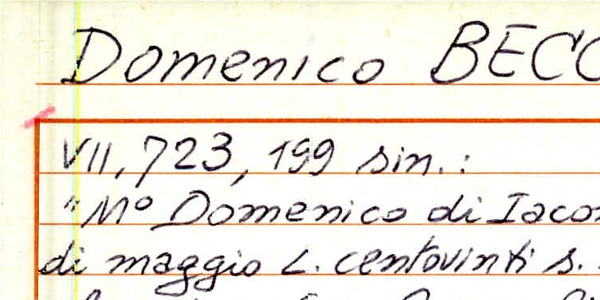 Domenico BECC
VII, 723, 199 sin.:
"Mº Domenico di Iaco
di maggio L. centovinti s.